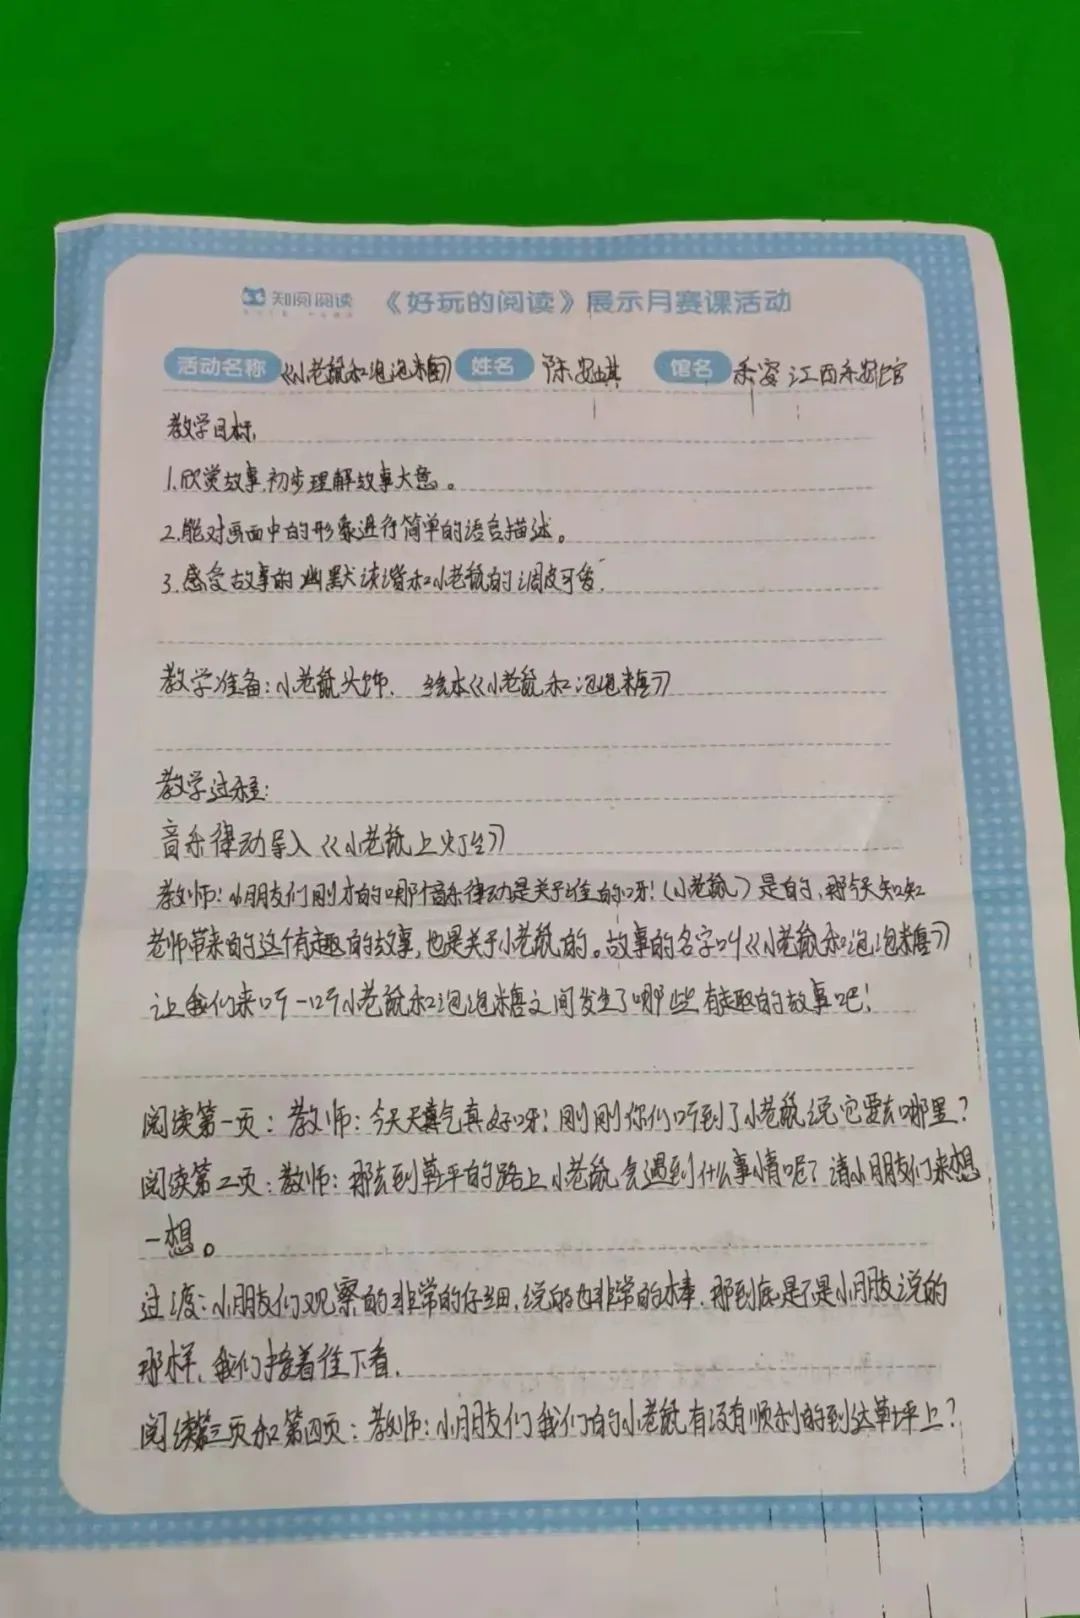 知阅阅读 《好玩的阅读》展示月赛课活动
活动名称 《小老鼠和泡泡糖》 姓名 陈安琪 馆名 江西
教学目标:
1.欣赏故事.初步理解故事大意。
2.能对画面中的形象进行简单的语言描述。
3.感受故事的幽默诙谐和小老鼠的调皮可爱.
教学准备:小老鼠头饰. 绘本《小老鼠和泡泡糖》
教学过程:
音乐律动导入《小老鼠上灯台》
教师:小朋友们刚才的哪个音乐律动是关于谁的呀!(小老鼠)是的,那今天知知
老师带来的这个有趣的故事,也是关于小老鼠的。故事的名字叫《小老鼠和泡泡糖》
让我们来听一听小老鼠和泡泡糖之间发生了哪些有趣的故事吧!
阅读第一页:教师:今天天气真好呀!刚刚你们听到了小老鼠说它要去哪里?
阅读第二页:教师:那去到草平的路上小老鼠会遇到什么事情呢?请小朋友们来想
一想。
过渡:小朋友们观察的非常的仔细,说的也非常的棒.那到底是不是小朋友说的
那样,我们接着往下看.
阅读第三页和第四页:教师:小朋友们我们的小老鼠有没有顺利的到达草坪上?